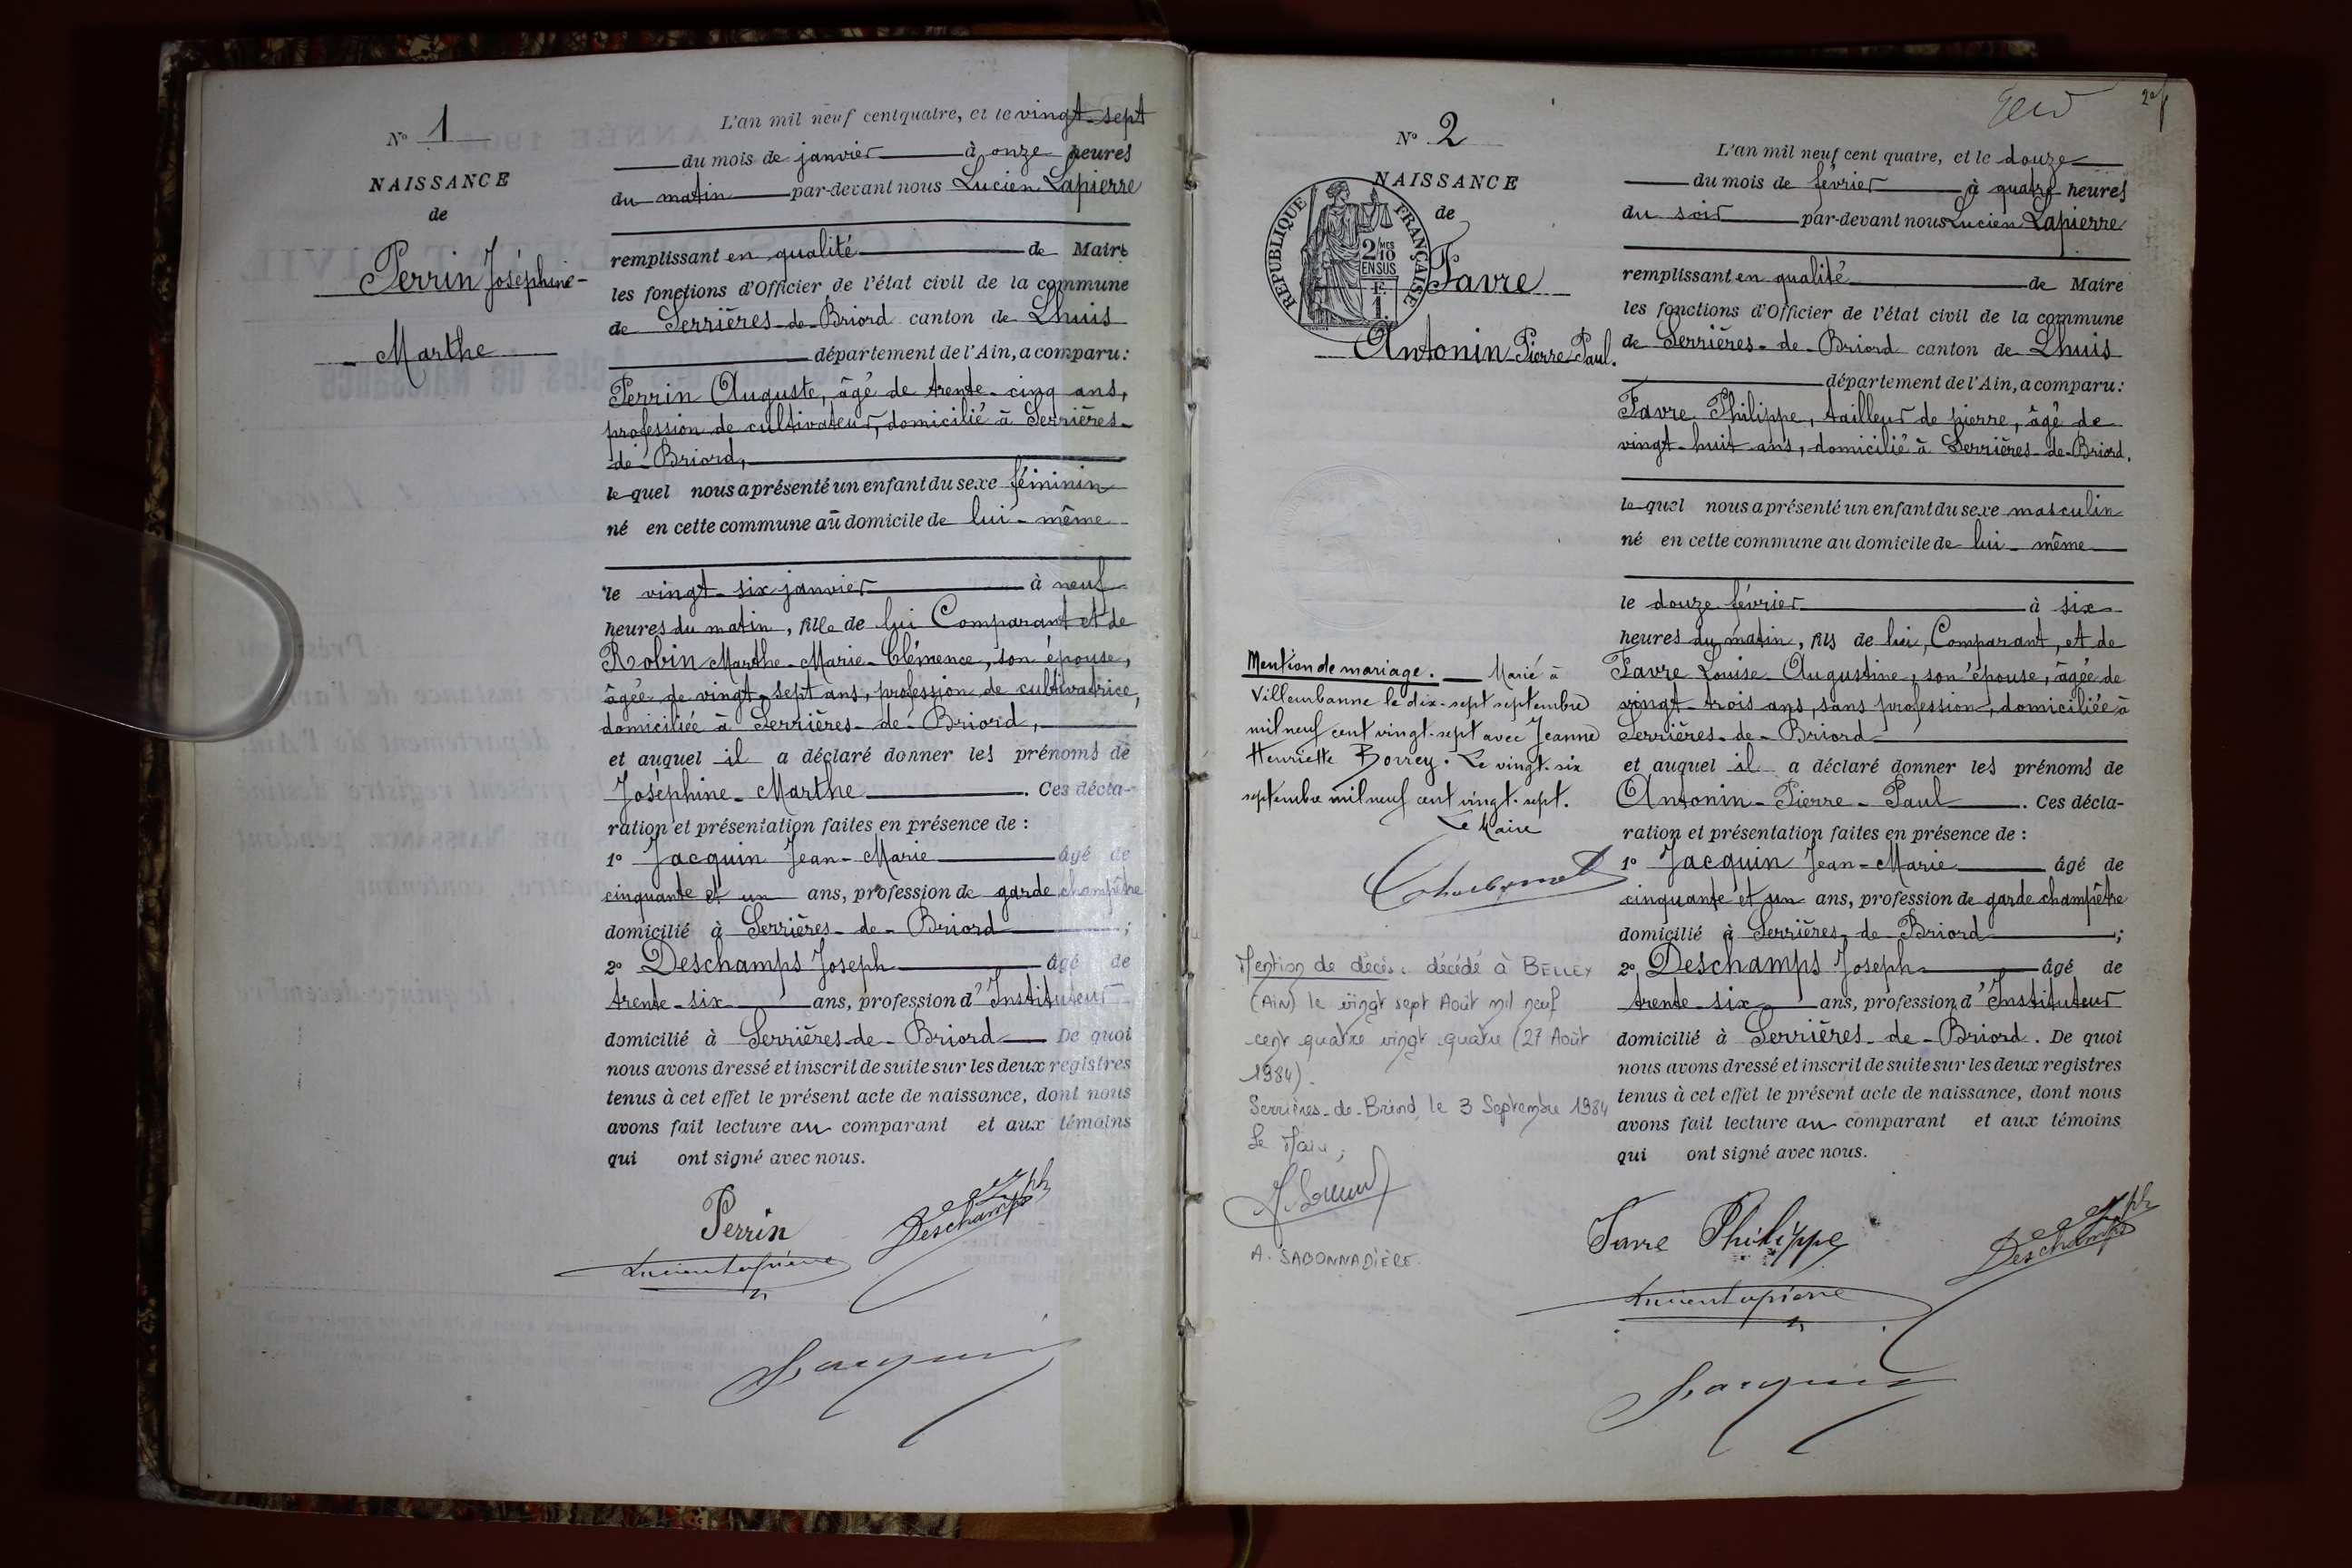 N° 1
NAISSANCE
de
Perrin Joséphine-
Marthe
L'an mil neuf cent quatre, et le vingt-sept
du mois de janvier à onze heures
du matin par-devant nous Lucien Lapierre
remplissant en qualité de Maire
les fonctions d'Officier de l'état civil de la commune
de Serrières-de-Briord canton de Lhuis
département de l'Ain, a comparu:
Perrin Auguste, âgé de trente-cinq ans,
profession de cultivateur, domicilié à Serrières-
de-Briord,
lequel nous a présenté un enfant du sexe féminin
né en cette commune au domicile de lui-même
le vingt-six janvier à neuf
heures du matin, fille de lui Comparant et de
Robin Marthe-Marie-Clémence, son épouse,
âgée de vingt-sept ans, profession de cultivatrice,
domiciliée à Serrières-de-Briord,
et auquel il a déclaré donner les prénoms de
Joséphine-Marthe. Ces décla-
ration et présentation faites en présence de :
1° Jacquin Jean-Marie âgé de
cinquante et un ans, profession de garde champêtre
domicilié à Serrières-de-Briord ;
2° Deschamps Joseph âgé de
trente-six ans, profession d'Instituteur
domicilié à Serrières-de-Briord De quoi
nous avons dressé et inscrit de suite sur les deux registres
tenus à cet effet le présent acte de naissance, dont nous
avons fait lecture au comparant et aux témoins
qui ont signé avec nous.
Perrin
Deschamps Jph
Lucien Lapierre
Jacquin
2e f
N° 2
NAISSANCE
de
RÉPUBLIQUE FRANÇAISE
2/10 MES
EN SUS
F.
1.
Favre
Antonin Pierre Paul.
L'an mil neuf cent quatre, et le douze
du mois de février à quatre heures
du soir par-devant nous Lucien Lapierre
remplissant en qualité de Maire
les fonctions d'Officier de l'état civil de la commune
de Serrières-de-Briord canton de Lhuis
département de l'Ain, a comparu:
Favre Philippe, tailleur de pierre, âgé de
vingt-huit ans, domicilié à Serrières-de-Briord.
lequel nous a présenté un enfant du sexe masculin
né en cette commune au domicile de lui-même
le douze février à six
heures du matin, fils de lui, Comparant, et de
Favre Louise-Augustine, son épouse, âgée de
vingt-trois ans, sans profession, domiciliée à
Serrières-de-Briord
et auquel il a déclaré donner les prénoms de
Antonin-Pierre-Paul. Ces décla-
ration et présentation faites en présence de :
1° Jacquin Jean-Marie âgé de
cinquante et un ans, profession de garde champêtre
domicilié à Serrières-de-Briord ;
2° Deschamps Joseph âgé de
trente-six ans, profession d'Instituteur
domicilié à Serrières-de-Briord. De quoi
nous avons dressé et inscrit de suite sur les deux registres
tenus à cet effet le présent acte de naissance, dont nous
avons fait lecture au comparant et aux témoins
qui ont signé avec nous.
Favre Philippe
Deschamps Jph
Lucien Lapierre
Jacquin
Mention de mariage. Marié à
Villeurbanne le dix-sept septembre
mil neuf cent vingt-sept avec Jeanne
Henriette Borrey. Le vingt-six
septembre mil neuf cent vingt-sept.
Le Maire
Mention de décès: décédé à BELLEY
(AIN) le vingt sept Août mil neuf
cent quatre vingt quatre (27 Août
1984).
Serrières-de-Briord, le 3 Septembre 1984
Le Maire,
A. SABONNADIÈRE.